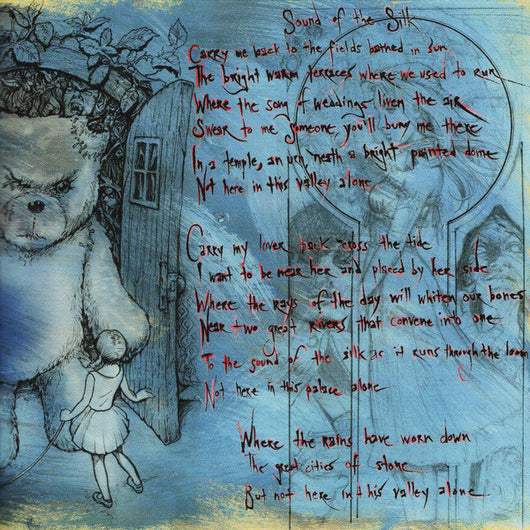 Sound of the Silk
Carry me back to the fields bathed in sun
The bright warm terraces where we used to run
Where the song of weddings liven the air
Swear to me someone you'll bury me there
In a temple, an urn, neath a bright painted dome
Not here in this valley alone
Carry my lover back 'cross the tide
I want to be near her and placed by her side
Where the rays of the day will whiten our bones
Near two great rivers that convene into one
To the sound of the silk as it runs through the loom
Not here in this palace alone
Where the rains have worn down
The great cities of stone
But not here in this valley alone